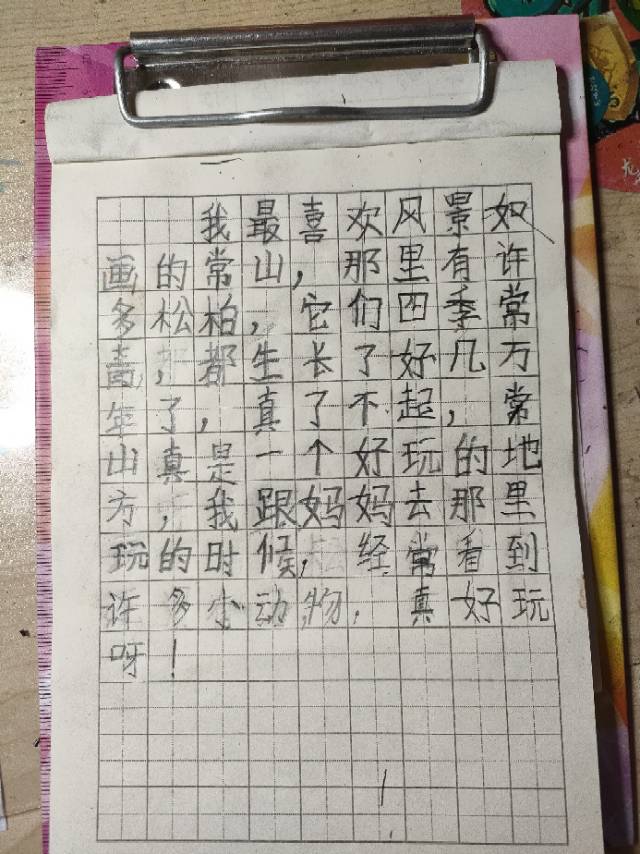 我最喜欢风景如
画的常山，那里有许
多松柏，它们四季常
青，都生长了好几万
年了，真了不起，常
山真是一个好玩的地
方，我跟妈妈去那里
玩的时候，经常看到
许多小动物，真好玩
呀！